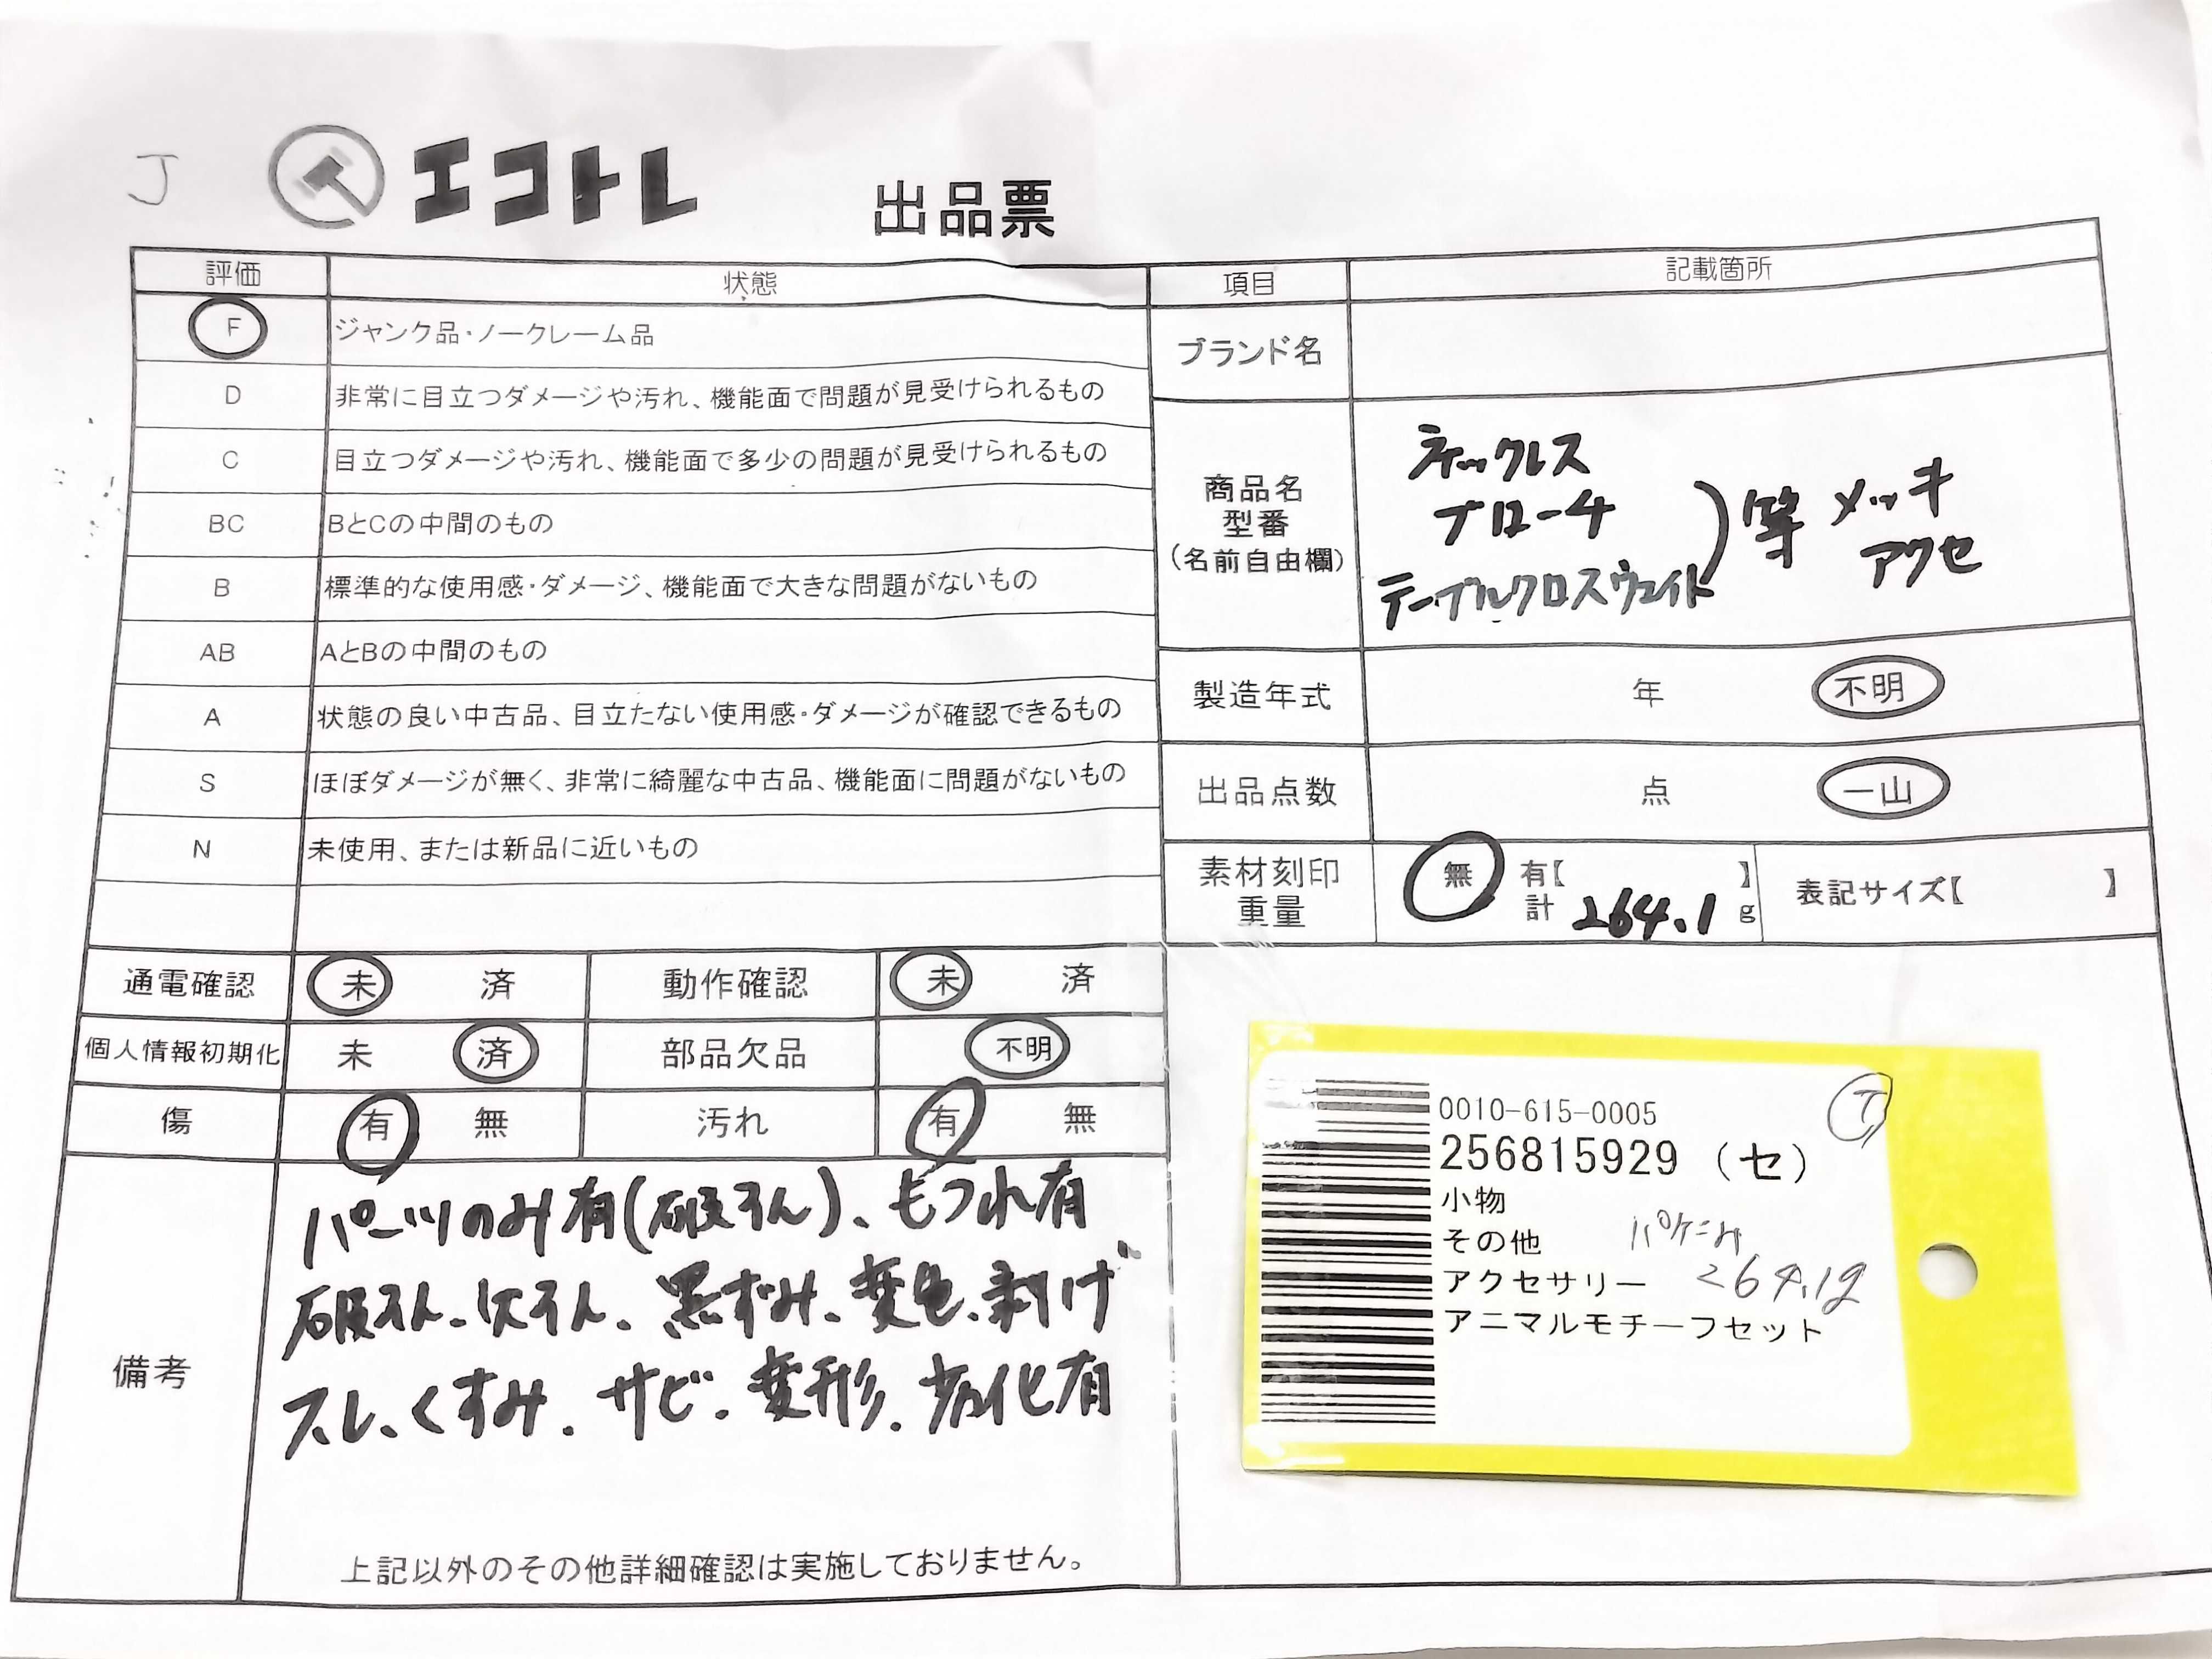 J
エコトレ
出品票
評価 状態
F ジャンク品・ノークレーム品
D 非常に目立つダメージや汚れ、機能面で問題が見受けられるもの
C 目立つダメージや汚れ、機能面で多少の問題が見受けられるもの
BC BとCの中間のもの
B 標準的な使用感・ダメージ、機能面で大きな問題がないもの
AB AとBの中間のもの
A 状態の良い中古品、目立たない使用感・ダメージが確認できるもの
S ほぼダメージが無く、非常に綺麗な中古品、機能面に問題がないもの
N 未使用、または新品に近いもの
通電確認 未 済 動作確認 未 済
個人情報初期化 未 済 部品欠品 不明
傷 有 無 汚れ 有 無
備考
パーツのみ有(破そん)、もつれ有
破そん、欠そん、黒ずみ、変色、剥げ
スレ、くすみ、サビ、変形、劣化有
上記以外のその他詳細確認は実施しておりません。
項目 記載箇所
ブランド名
商品名
型番
(名前自由欄)
ネックレス
ブローチ
テーブルクロスウェイト
)等 メッキ
アクセ
製造年式 年 不明
出品点数 点 一山
素材刻印
重量
無 有【 】
計 264.1 g
表記サイズ【 】
0010-615-0005
256815929 (セ)
小物
その他
アクセサリー 264.1g
アニマルモチーフセット